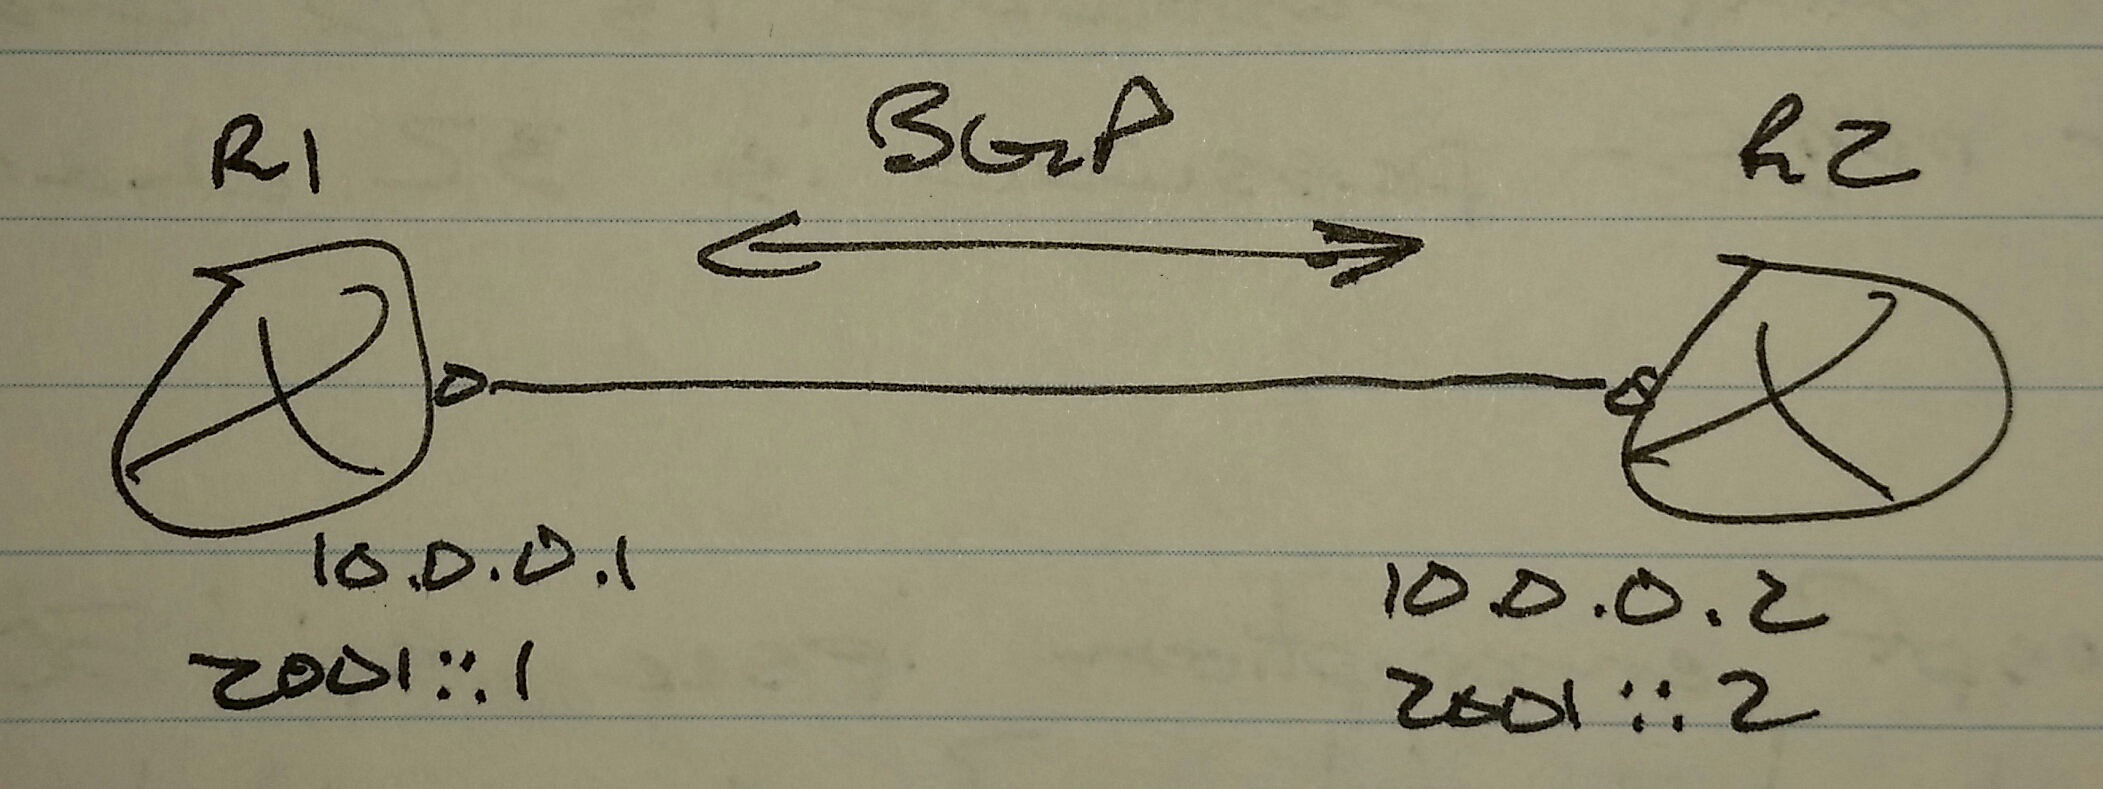 R1
BGP
R2
10.0.0.1
2001::1
10.0.0.2
2001::2